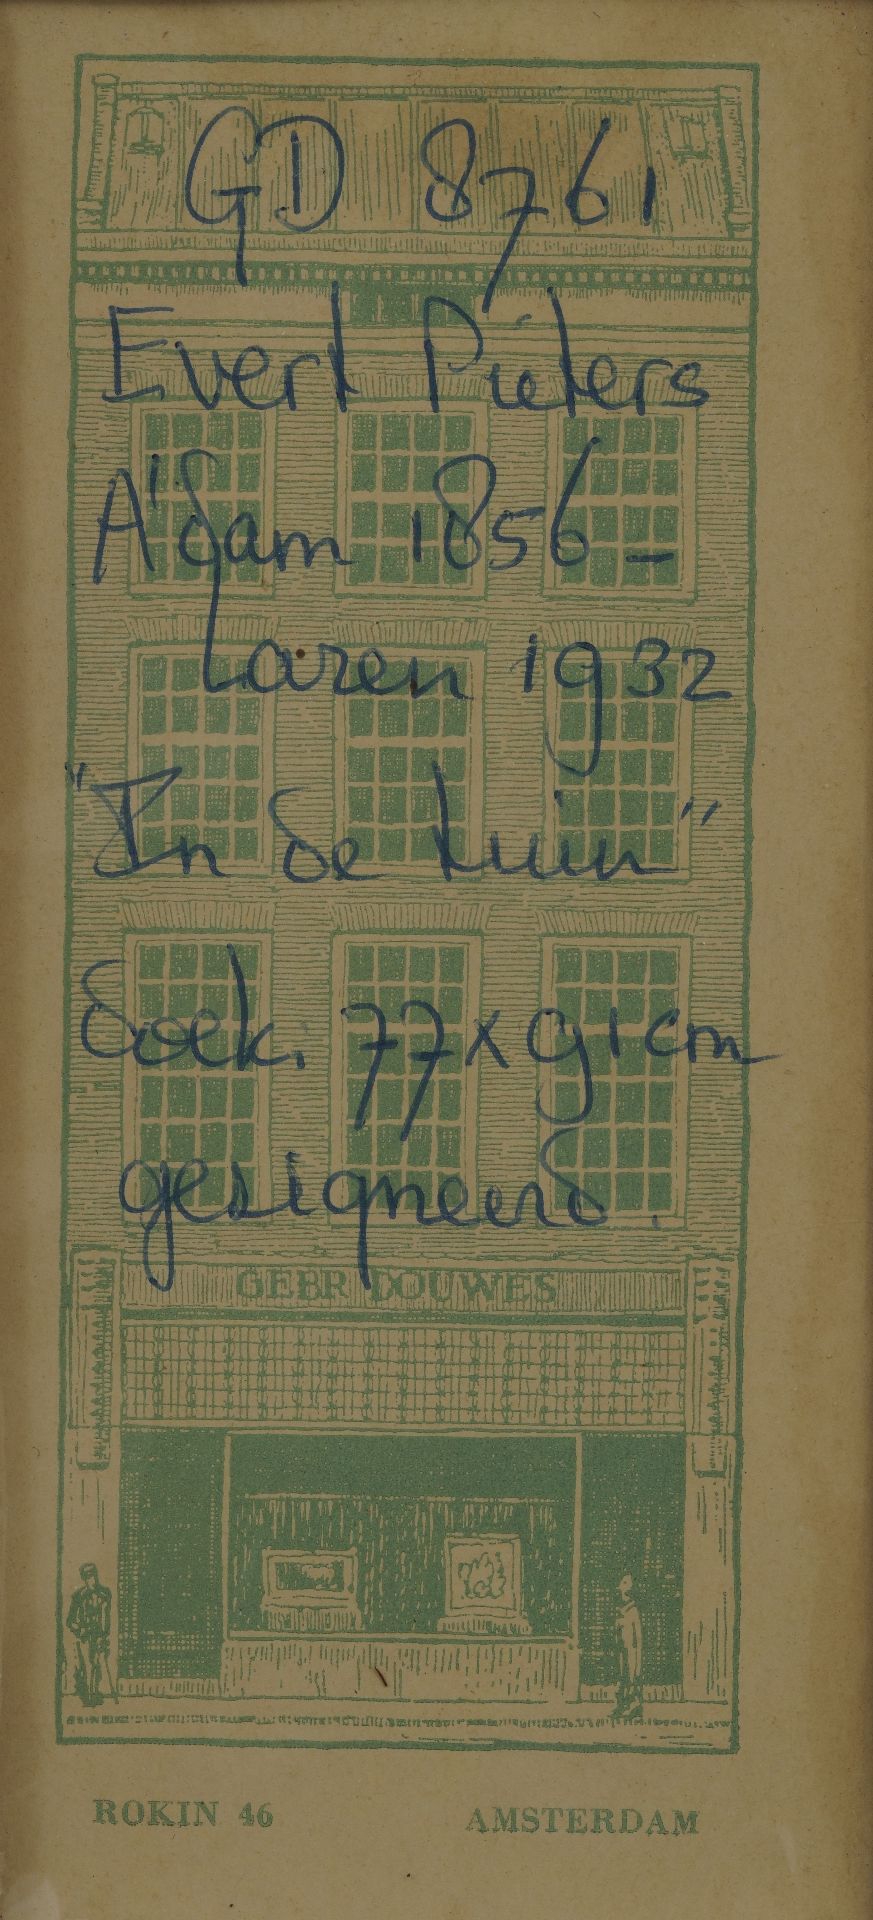 GD 8761
Evert Pieters
A'dam 1856 -
Laren 1932
"In de tuin"
doek. 77 x 91 cm
gesigneerd.
GEBR DOUWES
ROKIN 46 AMSTERDAM